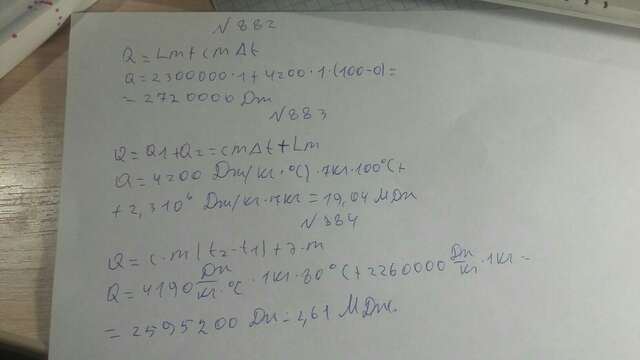 № 882
Q = Lm + cmΔt
Q = 2300000·1 + 4200·1·(100-0) =
= 2720000 Дж
№ 883
Q = Q1 + Q2 = cmΔt + Lm
Q = 4200 Дж/кг·°C)·7кг·100°C +
+ 2,3·10⁶ Дж/кг·7кг = 19,04 МДж
№ 884
Q = c·m(t2-t1) + λ·m
Q = 4190 Дж/кг·°C · 1кг·80°C + 2260000 Дж/кг·1кг =
= 2595200 Дж = 2,61 МДж.